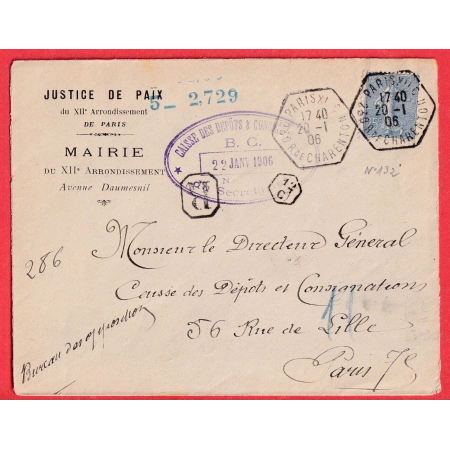 JUSTICE DE PAIX
du XIIe Arrondissement
DE PARIS
MAIRIE
DU XIIe ARRONDISSEMENT
Avenue Daumesnil
5_ 2,729
CAISSE DES DÉPÔTS &
B. C.
22 JANV 1906
N
Secret
PARIS XII
17 40
20 -1
06
R CHARENTON
PARIS XII
17 40
20 -1
06
R CHARENTON
R
12
C
N° 132
286
Bureau des oppositions
Monsieur le Directeur Général
Caisse des Dépôts et Consignations
56 Rue de Lille
Paris 7e